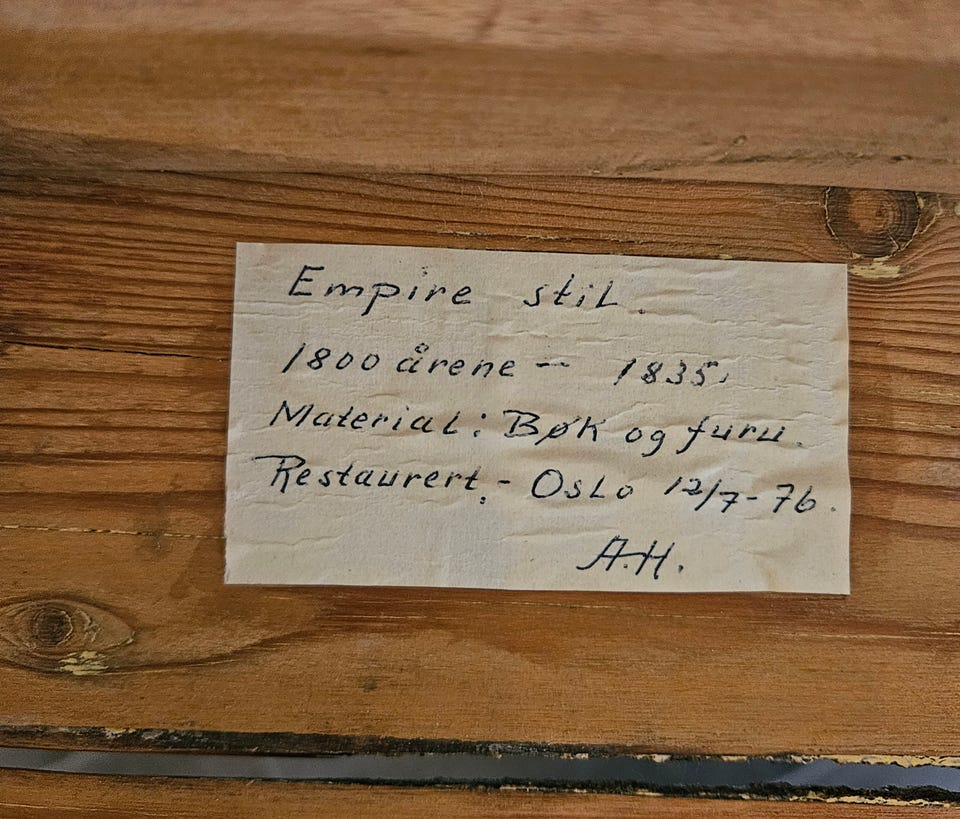 Empire stil.
1800 årene - 1835.
Material: Bøk og furu.
Restaurert, - Oslo 12/7-76.
A.H.